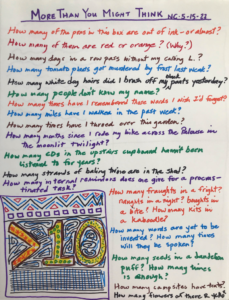 MORE THAN YOU MIGHT THINK NC: 5-15-22
How many of the pens in this box are out of ink - or almost?
How many of them are red or orange? (Why?)
How many days in a row pass without my calling L.?
How many tomato plants got murdered by frost last week?
How many white dog hairs did I brush off my black pants yesterday?
How many people don't know my name?
How many times have I remembered those words I wish I'd forgot?
How many miles have I walked in the past week?
How many times have I turned over this garden?
How many months since I rode my bike across the Palouse in
the moonlit twilight?
How many CDs in the upstairs cupboard haven't been
listened to for years?
How many strands of baling twine are in the shed?
How many internal reminders does one give for a procras-
tinated task?
How many fraughts in a fright?
noughts in a night? boughts in
a bite? How many kits in
a kaboodle?
How many words are yet to be
invented? How many times
will they be spoken?
How many seeds in a dandelion
puff? How many times
is enough?
How many campsites have tents?
How many flowers
>10